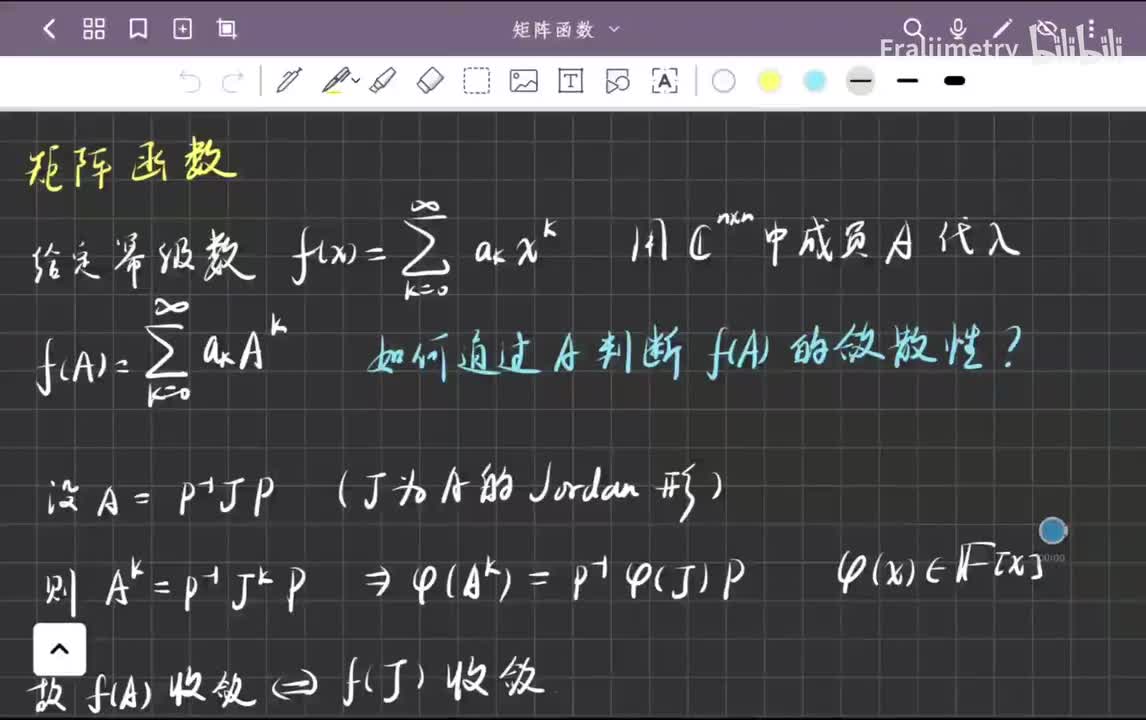 矩阵函数
Fraljimetry bilibili
矩阵函数
给定幂级数 f(x)=∑_{k=0}^{∞} a_k x^k 用 ℂ^{n×n} 中成员 A 代入
f(A)=∑_{k=0}^{∞} a_k A^k 如何通过 A 判断 f(A) 的敛散性?
设 A = P⁻¹JP (J为A的Jordan形)
00:00
则 A^k = P⁻¹J^kP ⇒ φ(A^k) = P⁻¹φ(J)P φ(x)∈𝔽[x]
故 f(A) 收敛 ⇔ f(J) 收敛